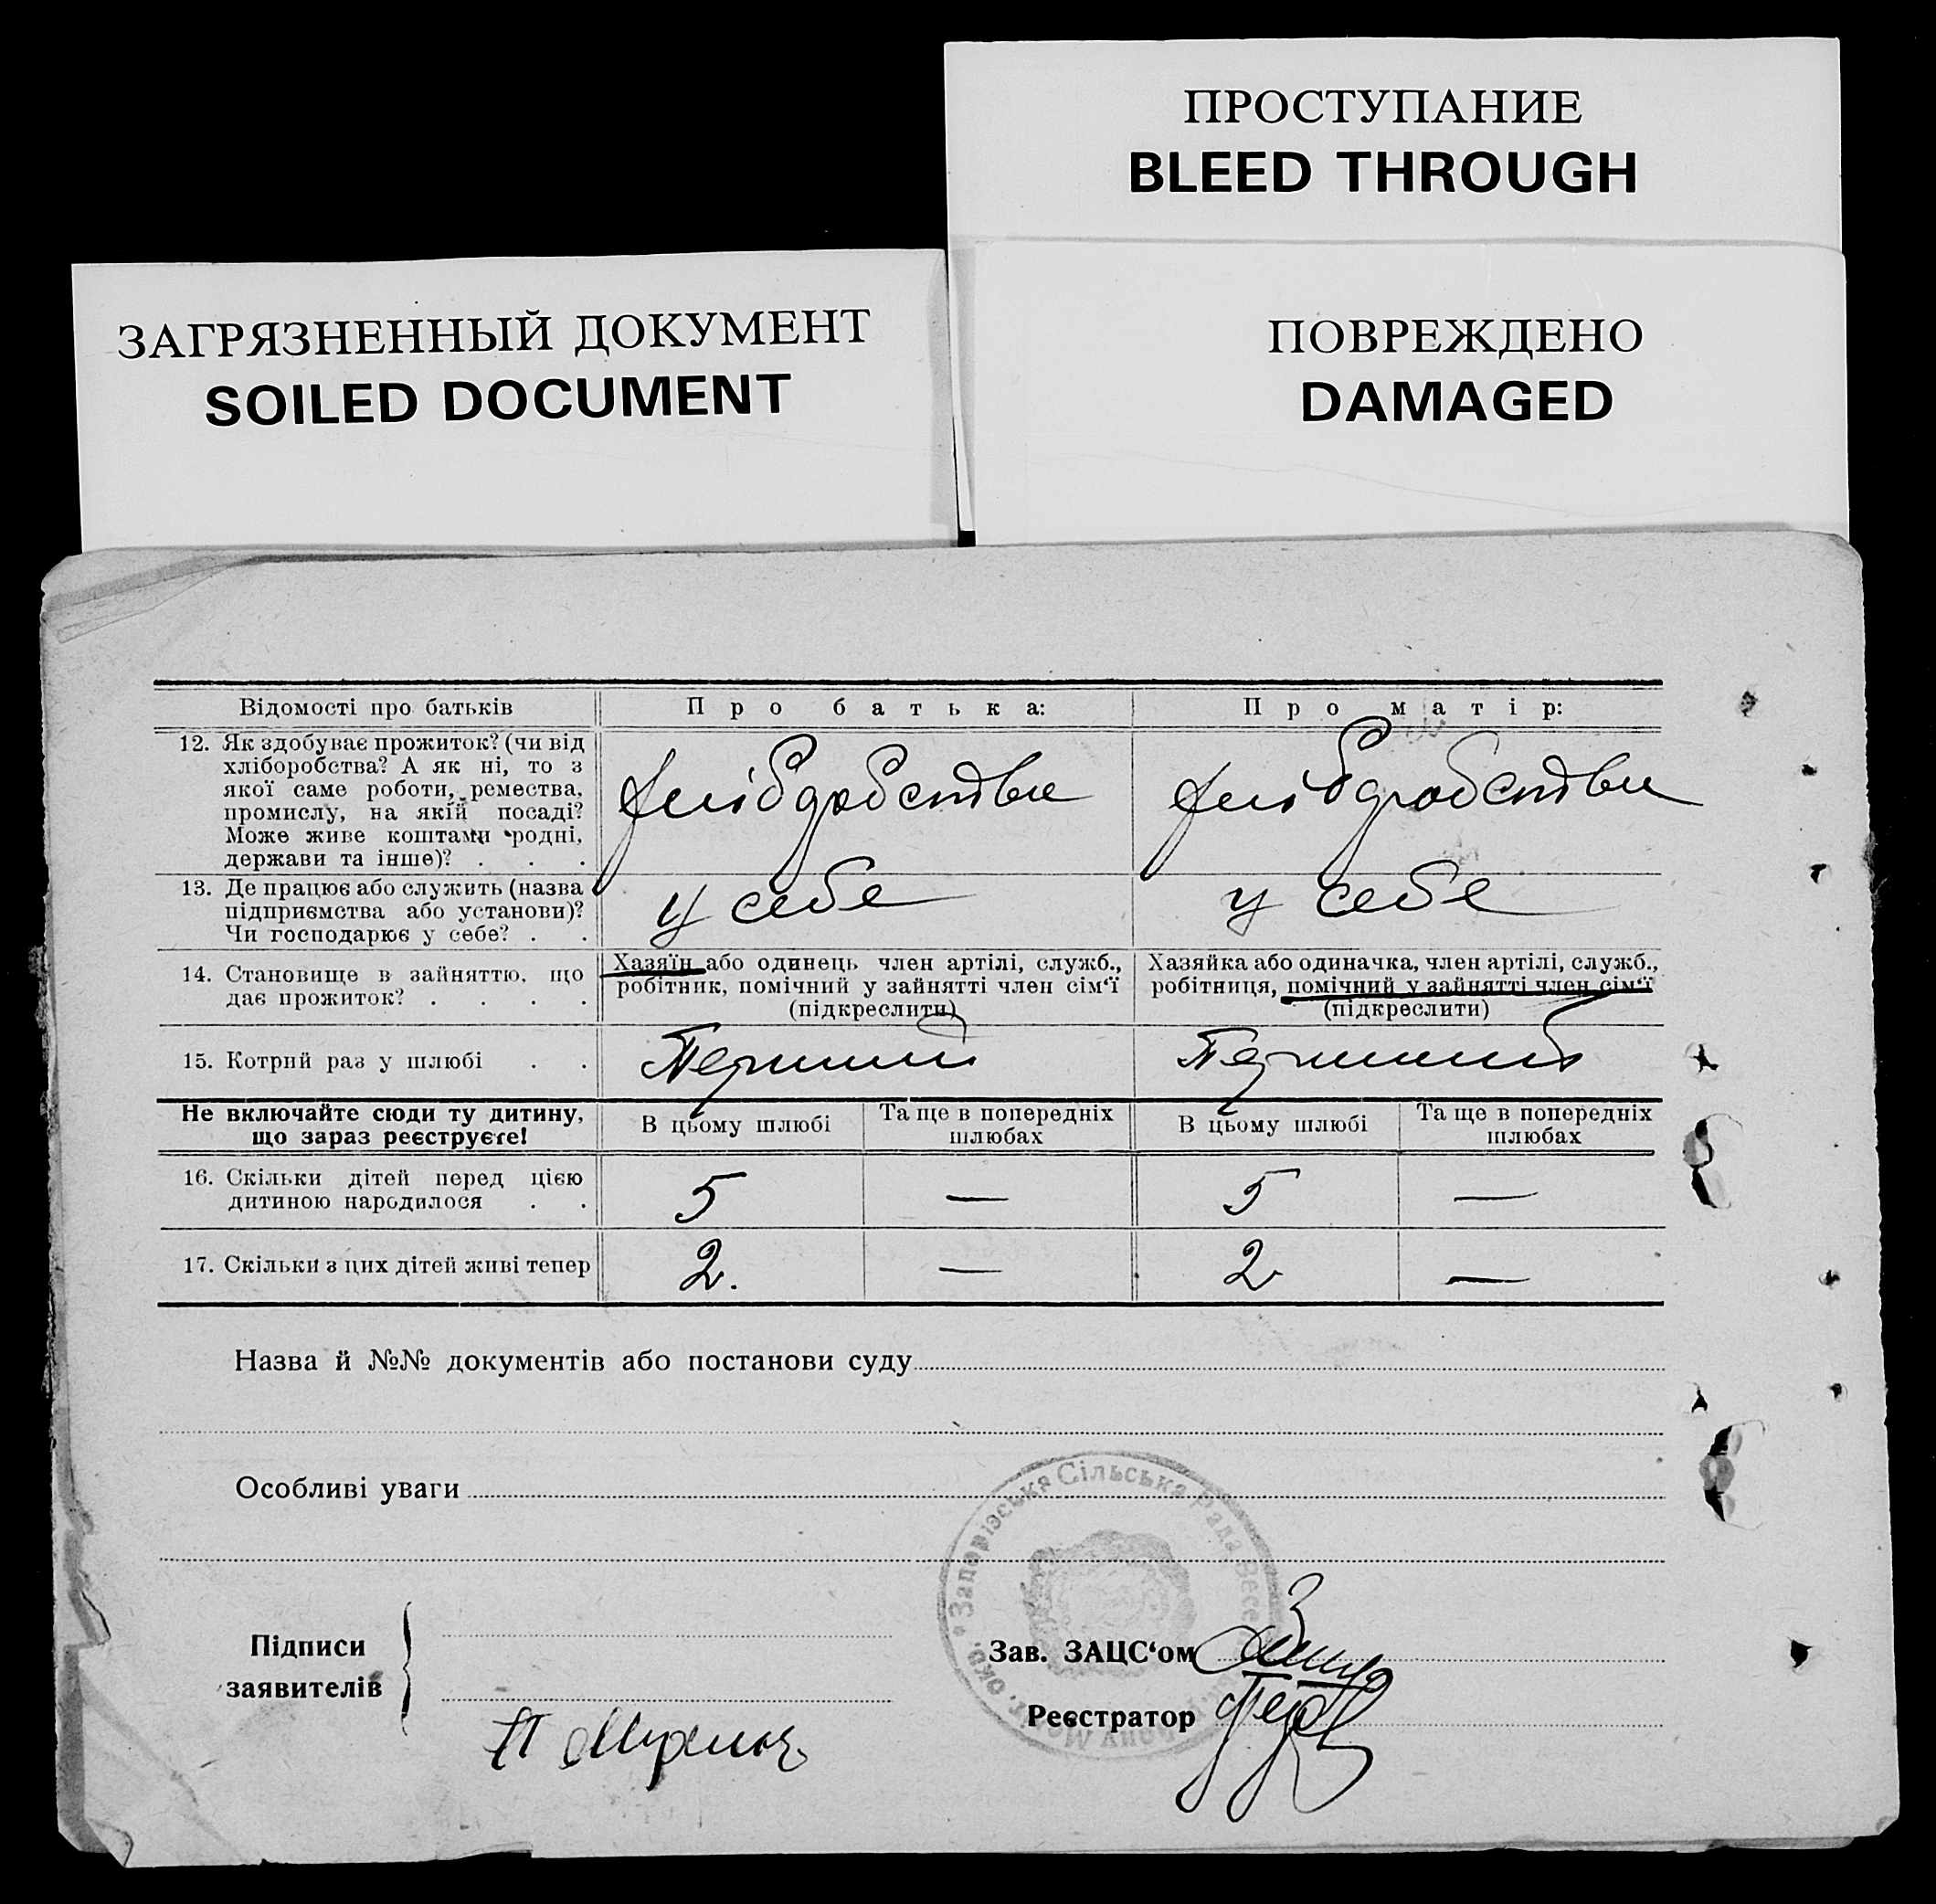 ПРОСТУПАНИЕ
BLEED THROUGH
ЗАГРЯЗНЕННЫЙ ДОКУМЕНТ
SOILED DOCUMENT
ПОВРЕЖДЕНО
DAMAGED
Відомості про батьків
Про батька:
Про матір:
12. Як здобуває прожиток? (чи від
хліборобства? А як ні, то з
якої саме роботи, ремества,
промислу, на якій посаді?
Може живе коштами родні,
держави та інше)? . . .
хліборобство
хліборобство
13. Де працює або служить (назва
підприємства або установи)?
Чи господарює у себе? . .
у себе
у себе
14. Становище в зайняттю, що
дає прожиток? . . . .
Хазяїн або одинець член артілі, служб.,
робітник, помічний у зайнятті член сім'ї
(підкреслити)
Хазяйка або одиначка, член артілі, служб.,
робітниця, помічний у зайнятті член сім'ї
(підкреслити)
15. Котрий раз у шлюбі . .
Перший
Перший
Не включайте сюди ту дитину,
що зараз реєструєте!
В цьому шлюбі
Та ще в попередніх
шлюбах
В цьому шлюбі
Та ще в попередніх
шлюбах
16. Скільки дітей перед цією
дитиною народилося . .
5 — 5 —
17. Скільки з цих дітей живі тепер
2. — 2 —
Назва й №№ документів або постанови суду
Особливі уваги
* Запорізська Сільська Рада
Підписи
заявителів
Зав. ЗАЦС'ом
Реєстратор